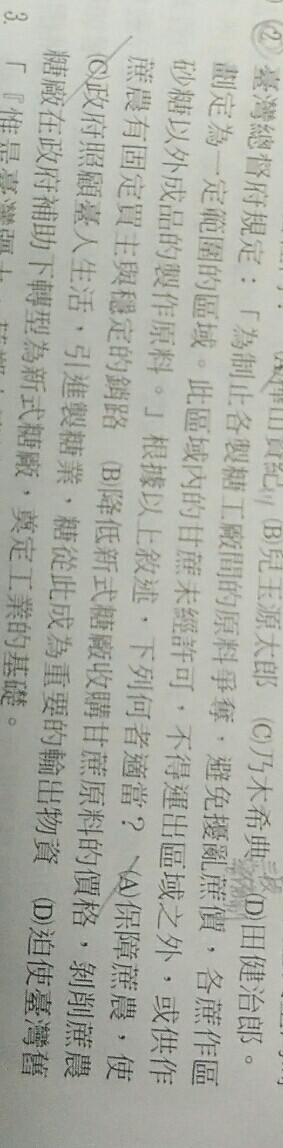 (B)兒玉源太郎 (C)乃木希典 (D)田健治郎。
② 臺灣總督府規定：「為制止各製糖工廠間的原料爭奪，避免擾亂蔗價，各蔗作區
劃定為一定範圍的區域。此區域內的甘蔗未經許可，不得運出區域之外，或供作
砂糖以外成品的製作原料。」根據以上敘述，下列何者適當？ (A)保障蔗農，使
蔗農有固定買主與穩定的銷路 (B)降低新式糖廠收購甘蔗原料的價格，剝削蔗農
(C)政府照顧臺人生活，引進製糖業，糖從此成為重要的輸出物資 (D)迫使臺灣舊
糖廠在政府補助下轉型為新式糖廠，奠定工業的基礎。
3. 「『惟是臺灣